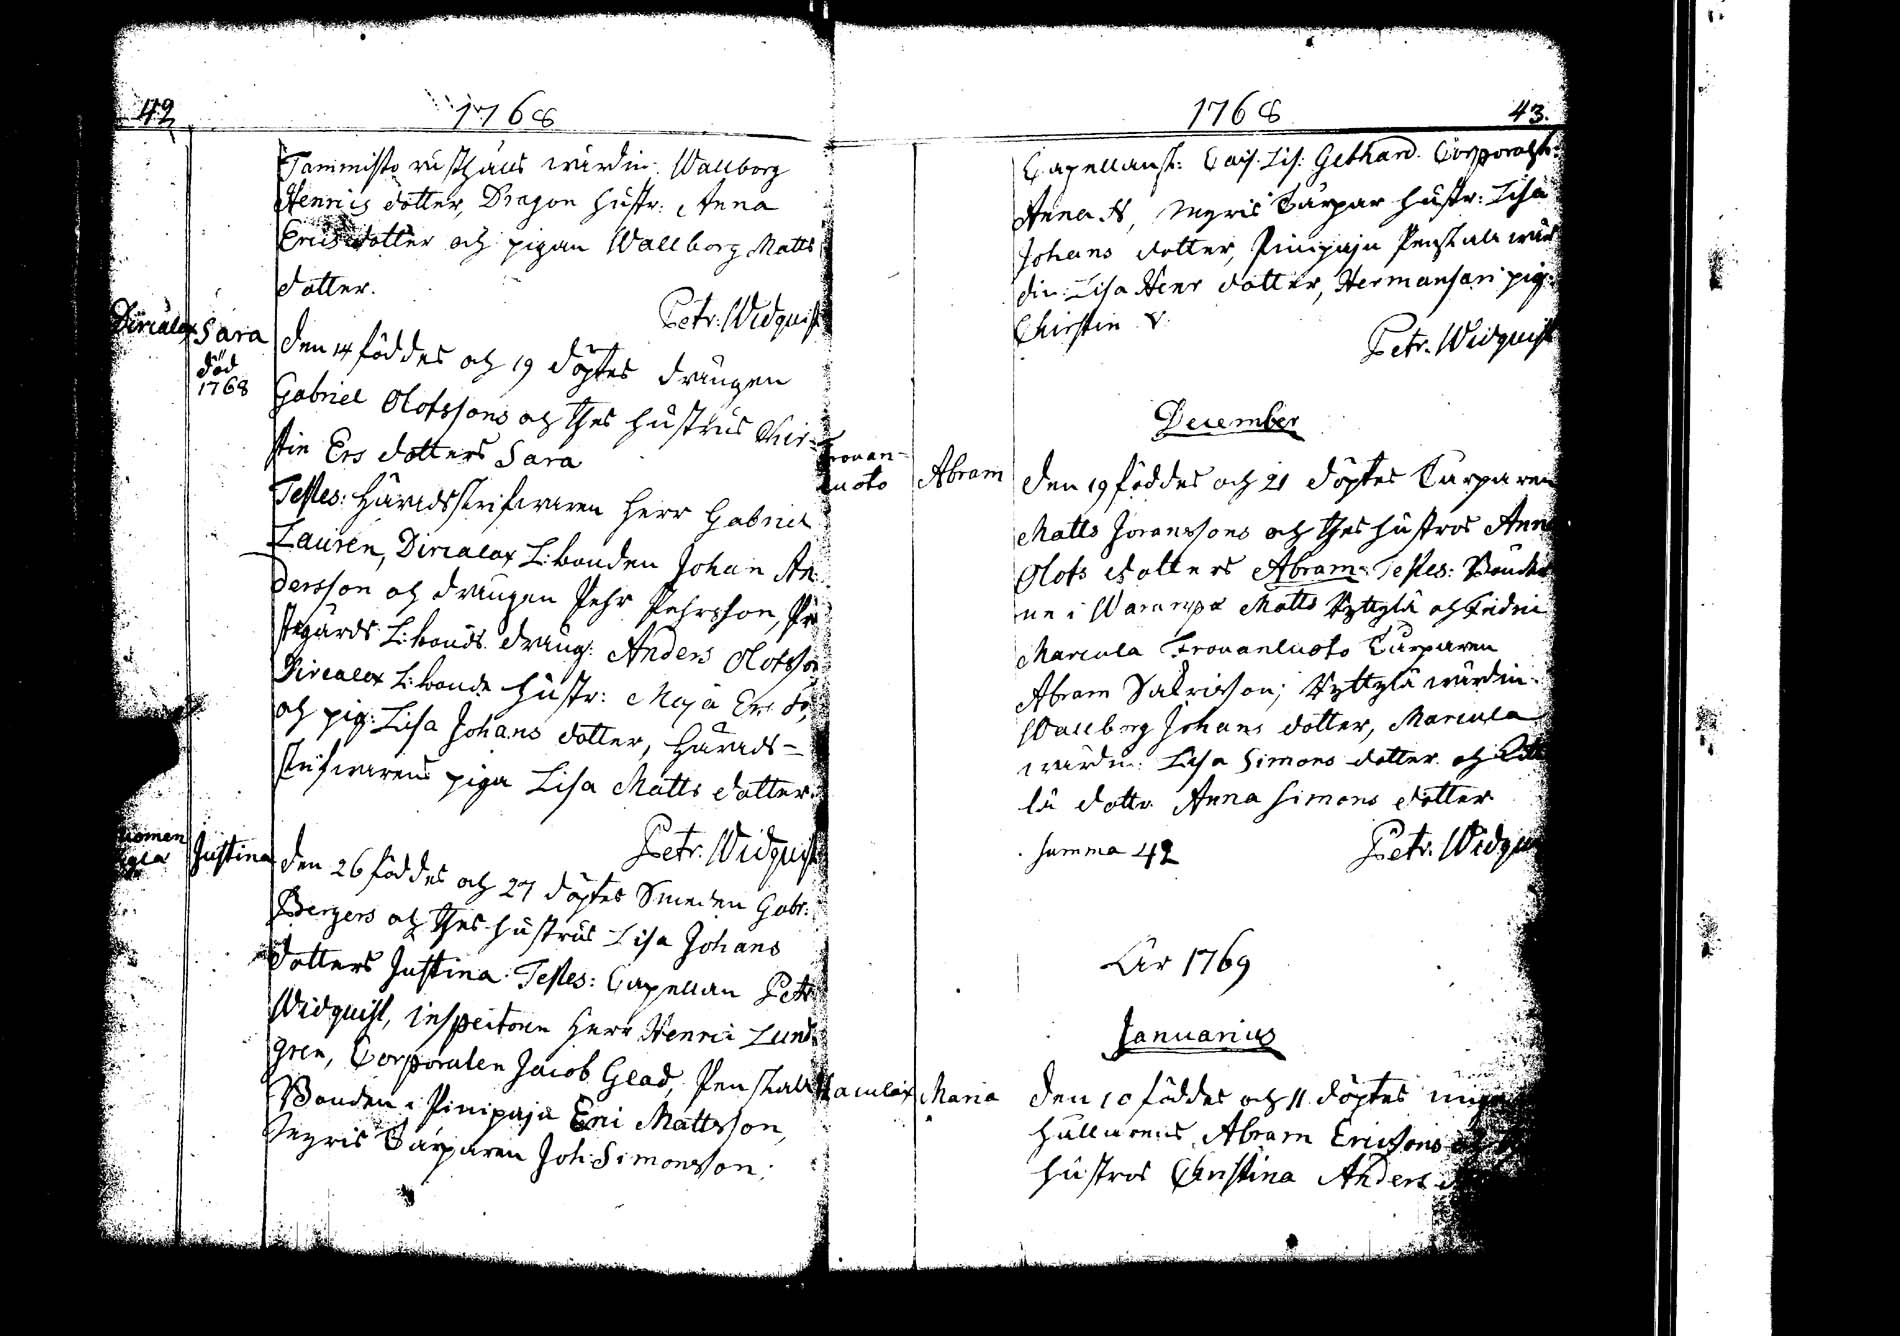 42
1768
Tammisto rusthålls wärdin: Wallborg
Henrics dotter, Dragon hustr: Anna
Erics dotter och pigan Wallborg Matts
dotter.
Petr: Widquist
Dircalax
Sara
död
1768
den 14 föddes och 19 döptes drängen
Gabriel Olofssons och thes hustrus Chir-
stin Ers dotters Sara
Testes: Häradsskrifwaren Herr Gabriel
Laurén, Dircalax L:bonden Johan An-
dersson och drängen Pehr Pehrsson, Pre
stgårds L:bonds dräng: Anders Olofsson
Dircalax L:bonde hustr: Maja Ers d:
och pig: Lisa Johans dotter, Härads-
skrifwarens piga Lisa Matts dotter.
Petr: Widquist
Justina
den 26 föddes och 27 döptes Smeden Gabr:
Bergers och thes hustrus Lisa Johans
dotters Justina. Testes: Capellan Petr
Widquist, inspectoren Herr Henric Lund
gren, Corporalen Jacob Glad, Penstala
Bonden i Pinipaja Eric Mattsson,
Myris Torparen Joh: Simonsson;
1768
43.
Capellansk: Caj: Lis: Gethard. Corporalsk:
Anna N, Myris Torpar hustr: Lisa
Johans dotter, Pinipaja Penstala wär
din: Lisa Henr dotter, Hermansari pig:
Chirstin
Petr: Widquist
December
Trouan-
luoto
Abram
den 19 föddes och 21 döptes Torparen
Matts Joranssons och thes hustros Anna
Olofs dotters Abram. Testes: Bönder
ne i Warampä Matts Kyttylä och Fridric
Marcula Trouanluoto Torparen
Abram Sakrisson; Kyttylä wärdin:
Wallborg Johans dotter, Marcula
wärdin: Lisa Simons dotter och
lä dottr. Anna Simons dotter
Summa 42
Petr: Widqu
År 1769
Januarius
Maria
den 10 föddes och 11 döptes
hållarens Abram Ericssons
hustros Christina Anders